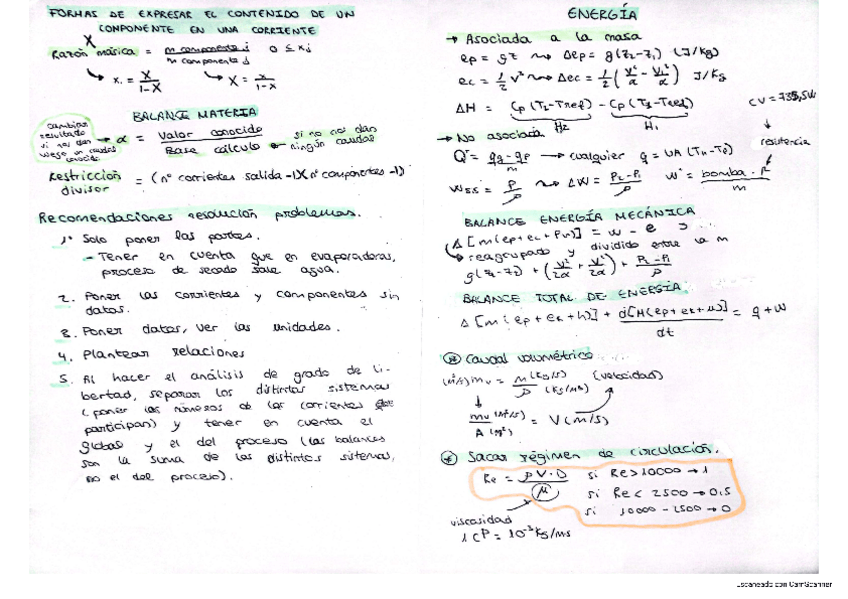 FORMAS DE EXPRESAR EL CONTENIDO DE UN
COMPONENTE EN UNA CORRIENTE
X
Razón másica = m componente i / m componente j   0 ≤ xj
x = X/1-X   X = x/1-x
BALANCE MATERIA
cambiar
resultado
si nos dan
un caudal
conocido
α = Valor conocido / Base cálculo
si no nos dan
ningún caudal
Restricción
divisor = (nº corrientes salida -1)(nº componentes -1)
Recomendaciones resolución problemas.
1. Solo poner las partes.
- Tener en cuenta que en evaporadores,
proceso de secado sale agua.
2. Poner las corrientes y componentes sin
datos.
3. Poner datos, ver las unidades.
4. Plantear relaciones
5. Al hacer el análisis de grado de li-
bertad, separar los distintos sistemas
(poner los números de las corrientes que
participan) y tener en cuenta el
global y el del proceso (los balances
son la suma de los distintos sistemas,
no el del proceso).
ENERGÍA
→ Asociada a la masa
ep = gz ⇝ Δep = g(z2-z1) (J/kg)
ec = 1/2 v² ⇝ Δec = 1/2 (v2²/α - v1²/α) J/kg
ΔH = Cp(T2-Tref) - Cp(T1-Tref)
H2   H1
CV = 735,5W
→ No asociada
resistencia
Q = qg - qp / m → cualquier q = UA(T∞-T0)
= P/ρ ⇝ ΔW = P2-P1/ρ   W = bomba · / m
BALANCE ENERGÍA MECÁNICA
reagrupado y dividido entre la m
g(z2-z1) + (v2²/2α + v1²/2α) + P2-P1/ρ
BALANCE TOTAL DE ENERGÍA
Δ[m(ep+ek+h)] + d[M(ep+ek+u)]/dt = q + w
Caudal volumétrico
(m³/s) mv = m (kg/s) / ρ (kg/m³) (velocidad)
mv (m³/s) / A (m²) = V (m/s)
Sacar régimen de circulación.
Re = ρ V·D / μ   si Re > 10000 → 1
si Re < 2500 → 0.5
si 10000 - 2500 → 0
viscosidad
1 cP = 10⁻³ kg/ms
Escaneado con CamScanner